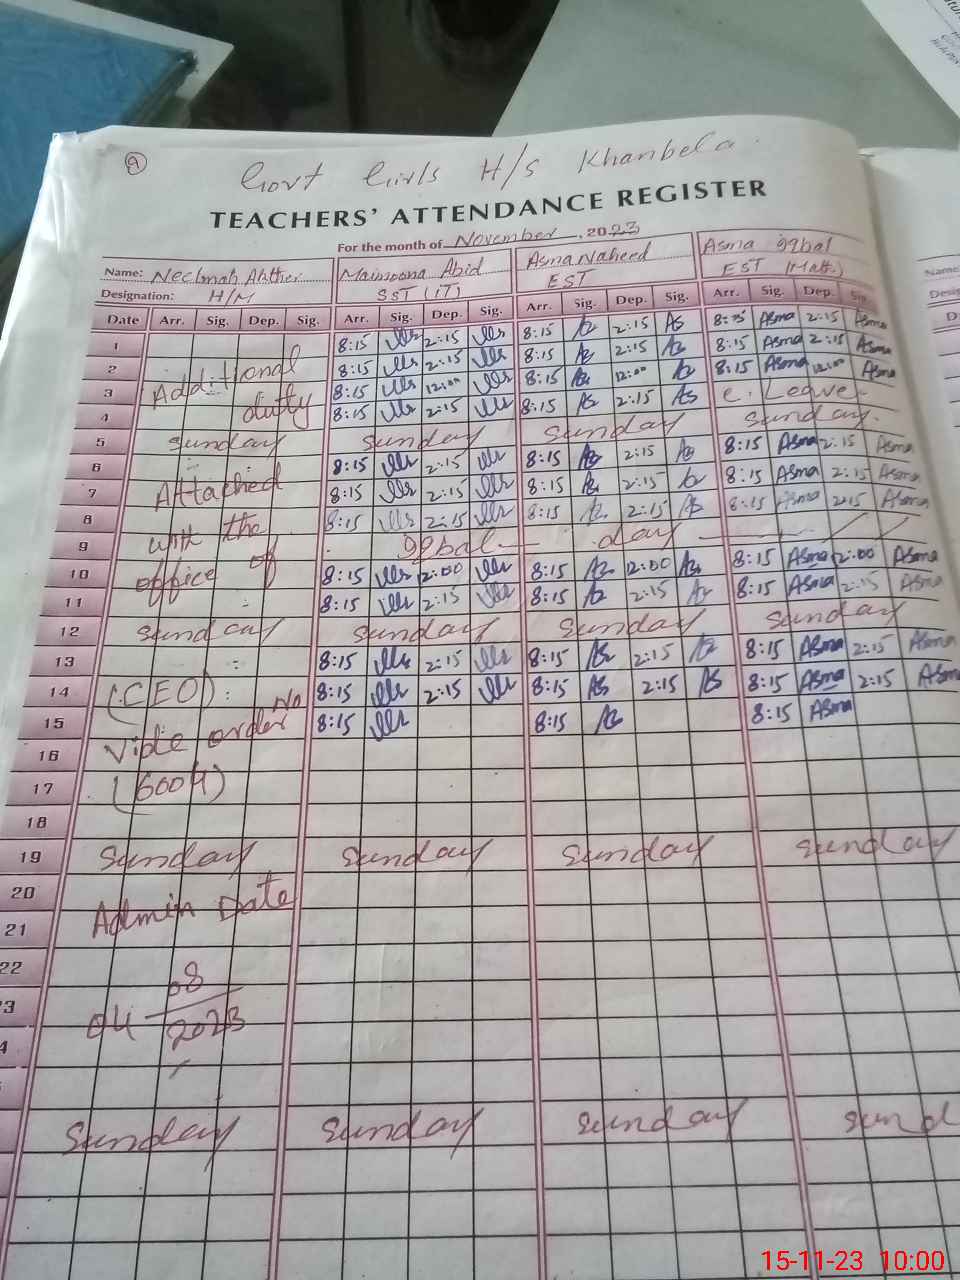 9
Govt Girls H/S Khanbela.
TEACHERS' ATTENDANCE REGISTER
For the month of November, 2023
Name: Maimoona Abid Asma Naheed Asma iqbal
Designation: H/M SST (IT) EST EST (Math.)
Date Arr. Sig. Dep. Sig. Arr. Sig. Dep. Sig. Arr. Sig. Dep. Sig. Arr. Sig. Dep. Sig.
1 8:15 2:15 8:15 2:15 8:15 Asma 2:15 Asma
2 Additional 8:15 2:15 8:15 2:15 8:15 Asma 2:15 Asma
3 dutty 8:15 12:00 8:15 12:00 8:15 Asma 12:00 Asma
4 8:15 2:15 8:15 2:15 C. Leave
5 Sunday Sunday Sunday Sunday.
6 8:15 2:15 8:15 2:15 8:15 Asma 2:15 Asma
7 Attached 8:15 2:15 8:15 2:15 8:15 Asma 2:15 Asma
8 with the 8:15 2:15 8:15 2:15 8:15 Asma 2:15 Asma
9 office of iqbal day
10 8:15 2:00 8:15 12:00 8:15 Asma 2:00 Asma
11 8:15 2:15 8:15 2:15 8:15 Asma 2:15 Asma
12 Sunday Sunday Sunday Sunday
13 8:15 2:15 8:15 2:15 8:15 Asma 2:15 Asma
14 (CEO) 8:15 2:15 8:15 2:15 8:15 Asma 2:15 Asma
15 Vide order No 8:15 8:15 8:15 Asma
16
17 (6004)
18
19 Sunday Sunday Sunday Sunday
20
21 Admin Date
22
3 04 08/2023
4
Sunday Sunday Sunday Sund
Name:
Desig
D
15-11-23 10:00